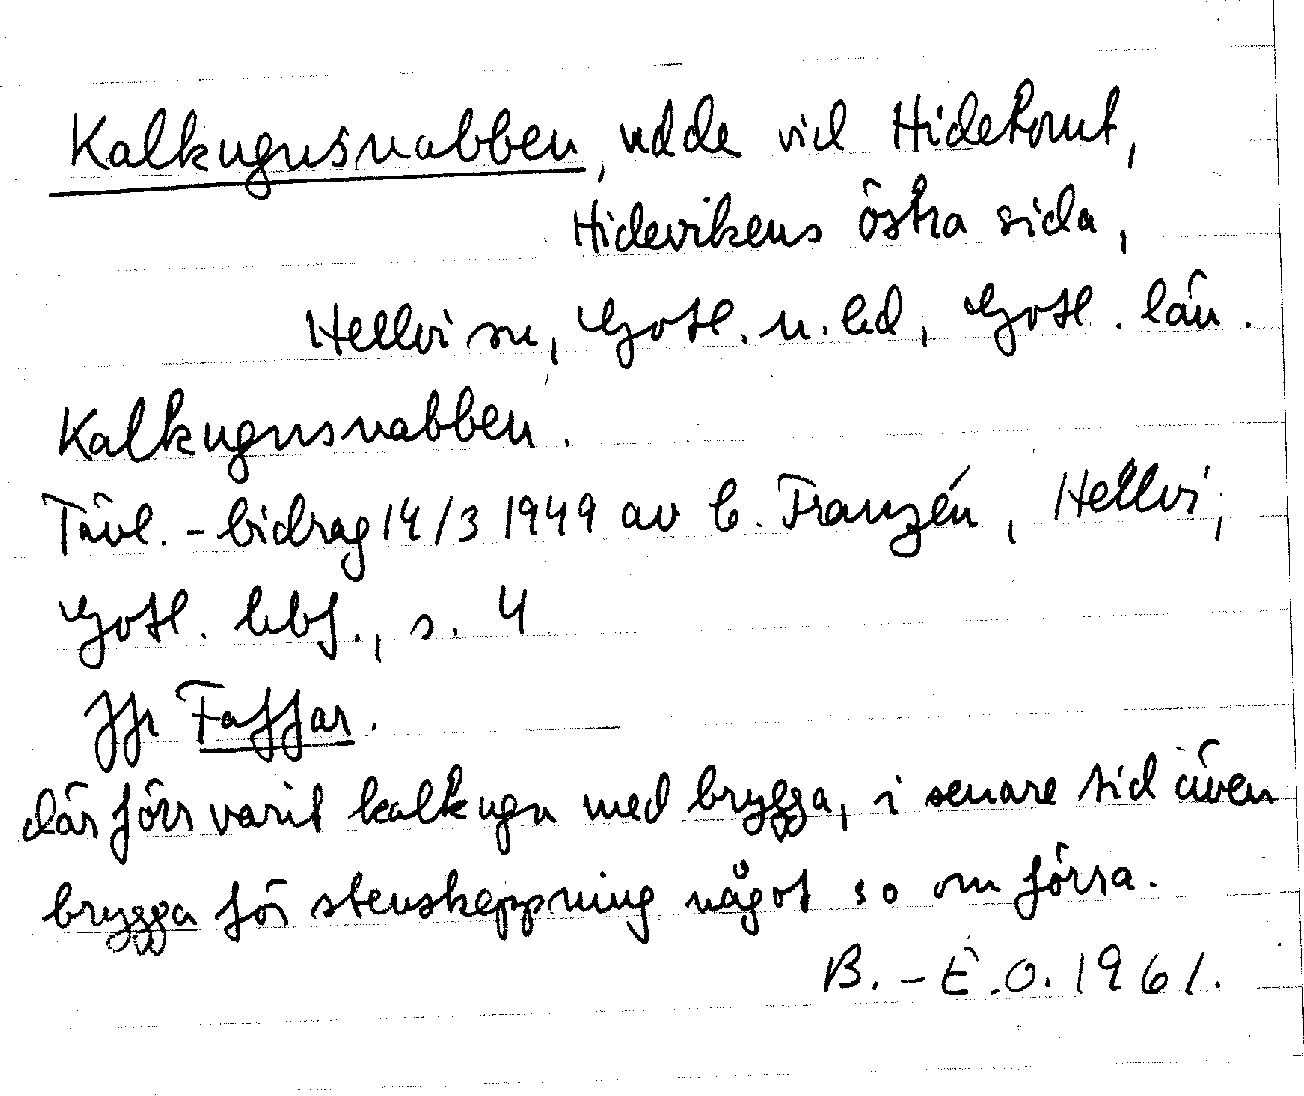 Kalkugnsnabben, udde vid Hidetomt,
Hidevikens östra sida,
Hellvi sn, Gotl. n. hd, Gotl. län.
Kalkugnsnabben.
Tävl.-bidrag 14/3 1949 av C. Franzén, Hellvi,
Gotl. hbf., s. 4
Jfr Faffar.
där förr varit kalkugn med brygga, i senare tid även
brygga för stenskeppning något so om förra.
B.-E.O. 1961.